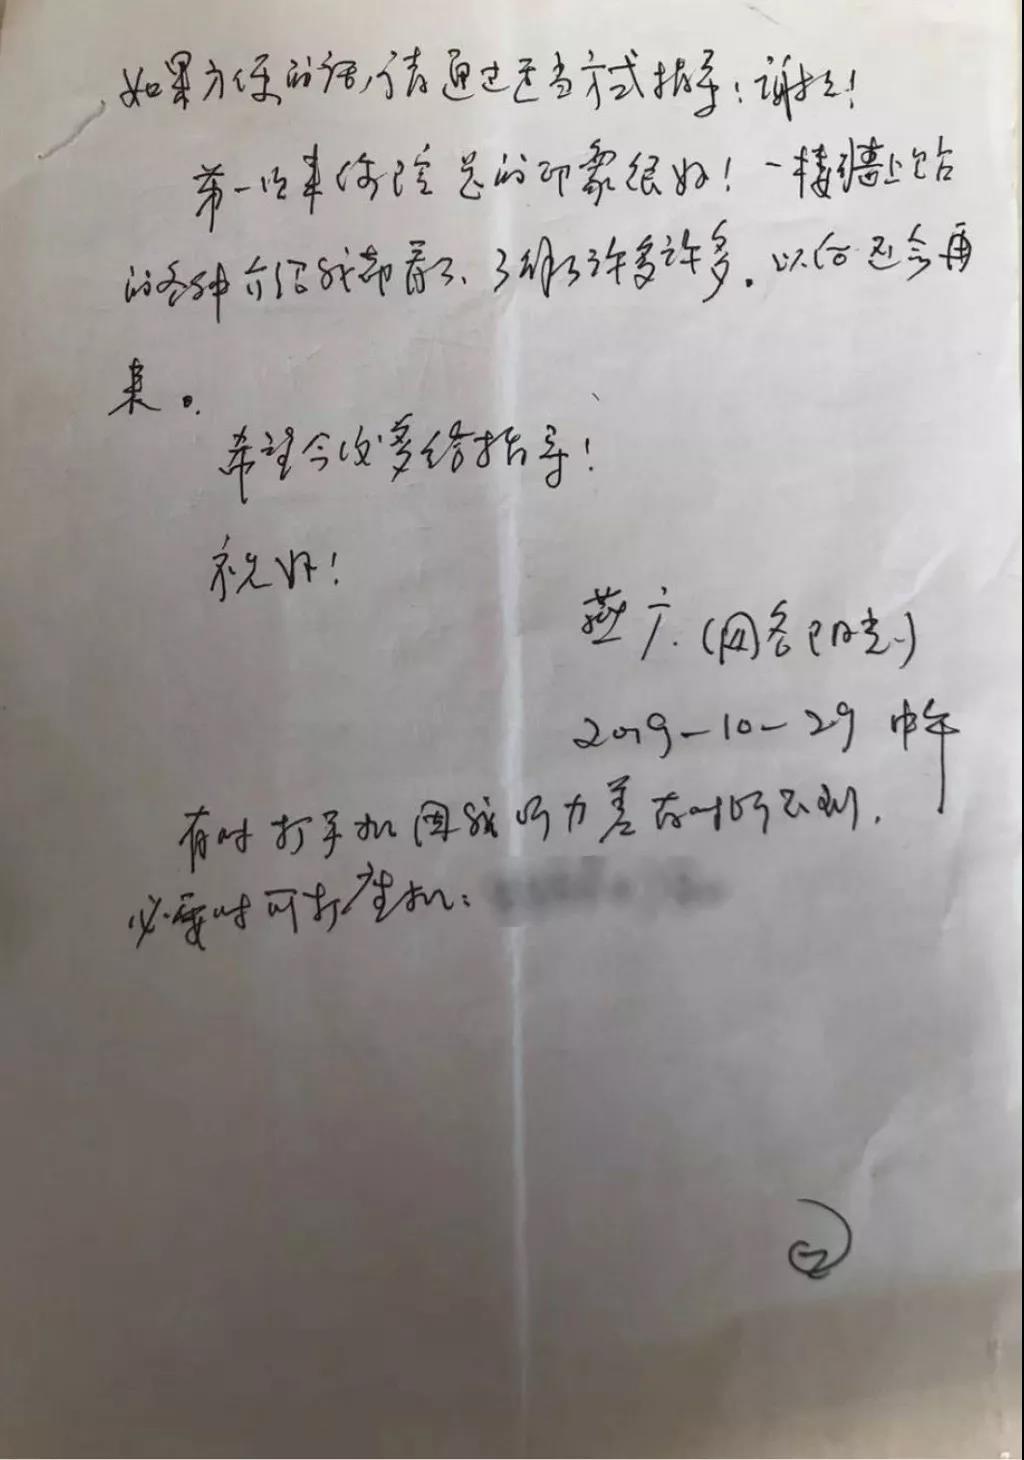 如果方便的话,请通过适当方式指导!谢谢!
第一次来你院总的印象很好!一楼墙上贴
的各种介绍我都看了、了解了许多许多。以后还会再
来。
希望今后多给指导!
祝好!
燕广.(网名阳光)
2019-10-29 中午
有时打手机因我听力差有时听不到.
必要时可打座机:
2